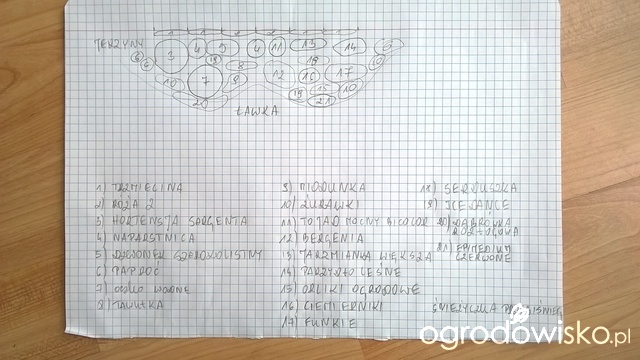 JERZYNY
3
4
5
4
11
13
14
6
6
6
18
8
18
10
7
9
12
16
17
10
20
19
10
21
ŁAWKA
1) TRZMIELINA
2) RÓŻA 2
3) HORTENSJA SARGENTA
4) NAPARSTNICA
5) DZWONEK SZEROKOLISTNY
6) PAPROĆ
7) oczko wodne
8) TAWUŁKA
9) MIODUNKA
10) ŻURAWKI
11) TOJAD MOCNY BICOLOR
12) BERGENIA
13) JARZMIANKA WIĘKSZA
14) PARZYDŁO LEŚNE
15) ORLIKI OGRODOWE
16) CIEMIERNIKI
17) FUNKIE
18) SERDUSZKA
19) ICEDANCE
20) DĄBRÓWKA ROZŁOGOWA
21) EPIMEDIUM CZERWONE
ŚNIEŻYCZKA PRZEBIŚNIEG
ogrodowisko.pl